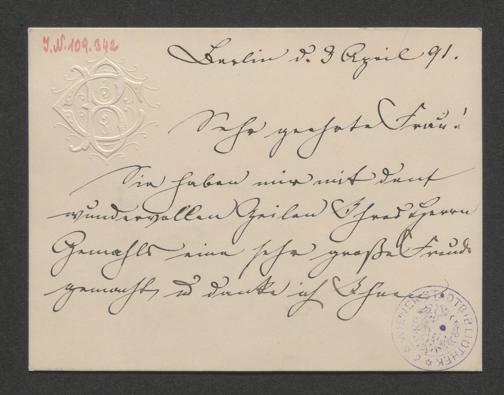 J.N. 109.342
Berlin d. 3 April 91.
Sehr geehrte Frau!
Sie haben mir mit den
wundervollen Zeilen Ihres Herrn
Gemahls eine sehr große Freude
gemacht, u danke ich Ihnen
WIENER STADTBIBLIOTHEK